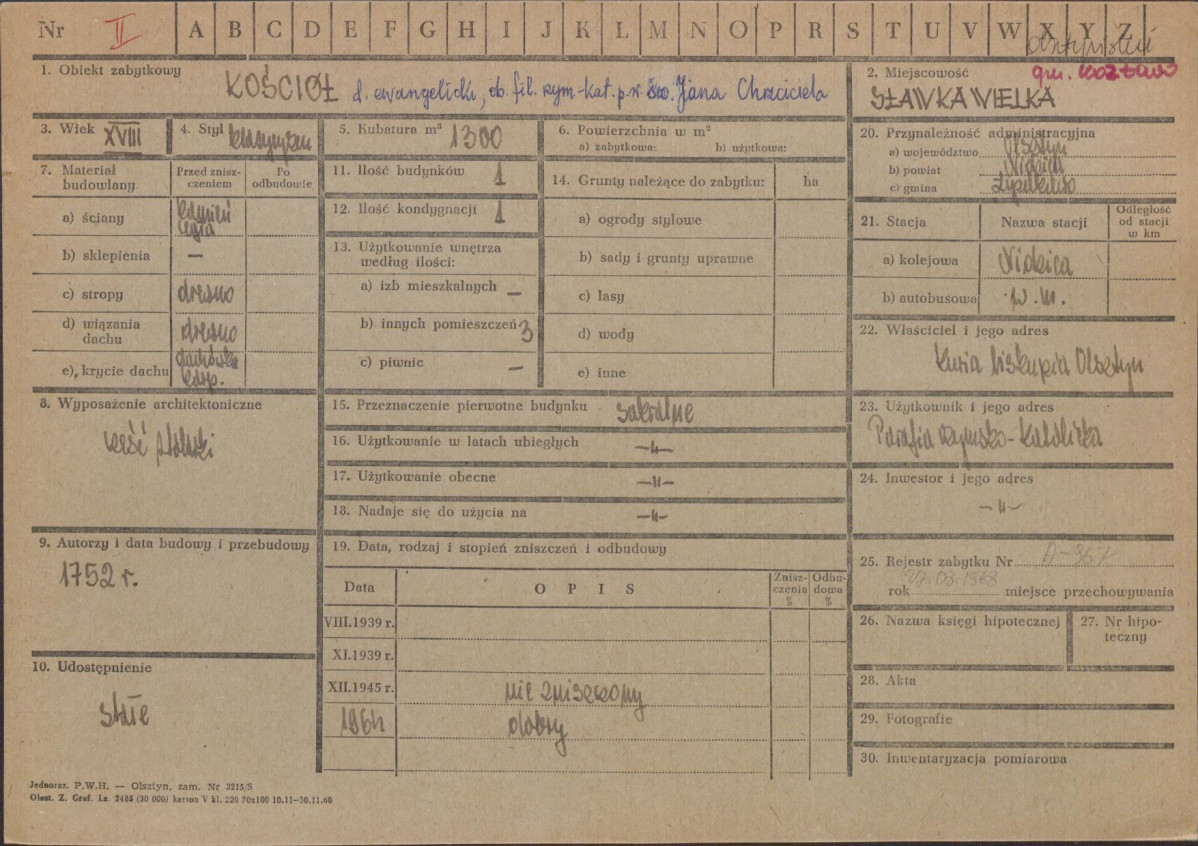 Nr II A B C D E F G H I J K L M N O P R S T U V W X Y Z
1. Obiekt zabytkowy
KOŚCIÓŁ d. ewangelicki, ob. fil. rzym-kat. p.w. św. Jana Chrzciciela
2. Miejscowość
gm. Kozłowo
SŁAWKA WIELKA
3. Wiek XVIII
4. Styl klasycyzm
5. Kubatura m³ 1300
6. Powierzchnia w m²
a) zabytkowa: b) użytkowa:
20. Przynależność administracyjna
a) województwo Olsztyn
b) powiat Nidzica
c) gmina
7. Materiał budowlany
Przed zniszczeniem
Po odbudowie
a) ściany kamień cegła
b) sklepienia —
c) stropy drewno
d) wiązania dachu drewno
e) krycie dachu dachówka
8. Wyposażenie architektoniczne
9. Autorzy i data budowy i przebudowy
1752 r.
10. Udostępnienie
stałe
11. Ilość budynków 1
12. Ilość kondygnacji 1
13. Użytkowanie wnętrza według ilości:
a) izb mieszkalnych —
b) innych pomieszczeń 3
c) piwnic —
14. Grunty należące do zabytku: ha
a) ogrody stylowe
b) sady i grunty uprawne
c) lasy
d) wody
e) inne
15. Przeznaczenie pierwotne budynku sakralne
16. Użytkowanie w latach ubiegłych —"—
17. Użytkowanie obecne —"—
18. Nadaje się do użycia na —"—
19. Data, rodzaj i stopień zniszczeń i odbudowy
Data OPIS Zniszczenia % Odbudowa %
VIII.1939 r.
XI.1939 r.
XII.1945 r. nie zniszczony
1964 dobry
21. Stacja Nazwa stacji Odległość od stacji w km
a) kolejowa Nidzica
b) autobusowa w m.
22. Właściciel i jego adres
Kuria biskupia Olsztyn
23. Użytkownik i jego adres
Parafia rzymsko-katolicka
24. Inwestor i jego adres
—"—
25. Rejestr zabytku Nr A-367
rok 27.03.1968 miejsce przechowywania
26. Nazwa księgi hipotecznej
27. Nr hipoteczny
28. Akta
29. Fotografie
30. Inwentaryzacja pomiarowa
Jednoraz. P.W.H. — Olsztyn, zam. Nr 3215/S
Olszt. Z. Graf. Lz. 2485 (30 000) karton V kl. 220 70x100 10.11—30.11.60